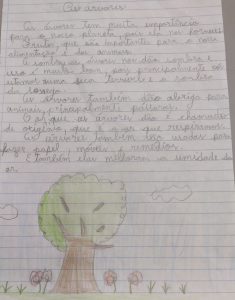 As árvores
As árvores tem muita importância
para o nosso planeta, pois ela nos fornece
frutas, que são importante para a nossa
alimentação e dos animais.
A sombra as árvores nos dão sombra e
isso é muito bom, pois principalmente nós
estamos numa seca terrível e a cor
da
As árvores também dão abrigo para
animais, principalmente pássaros.
O ar que as árvores dão é chamado
de oxigênio, que é o ar que respiramos.
As árvores também são usadas para
fazer papel, móveis e remédios.
E também elas melhoram a umidade do
ar.